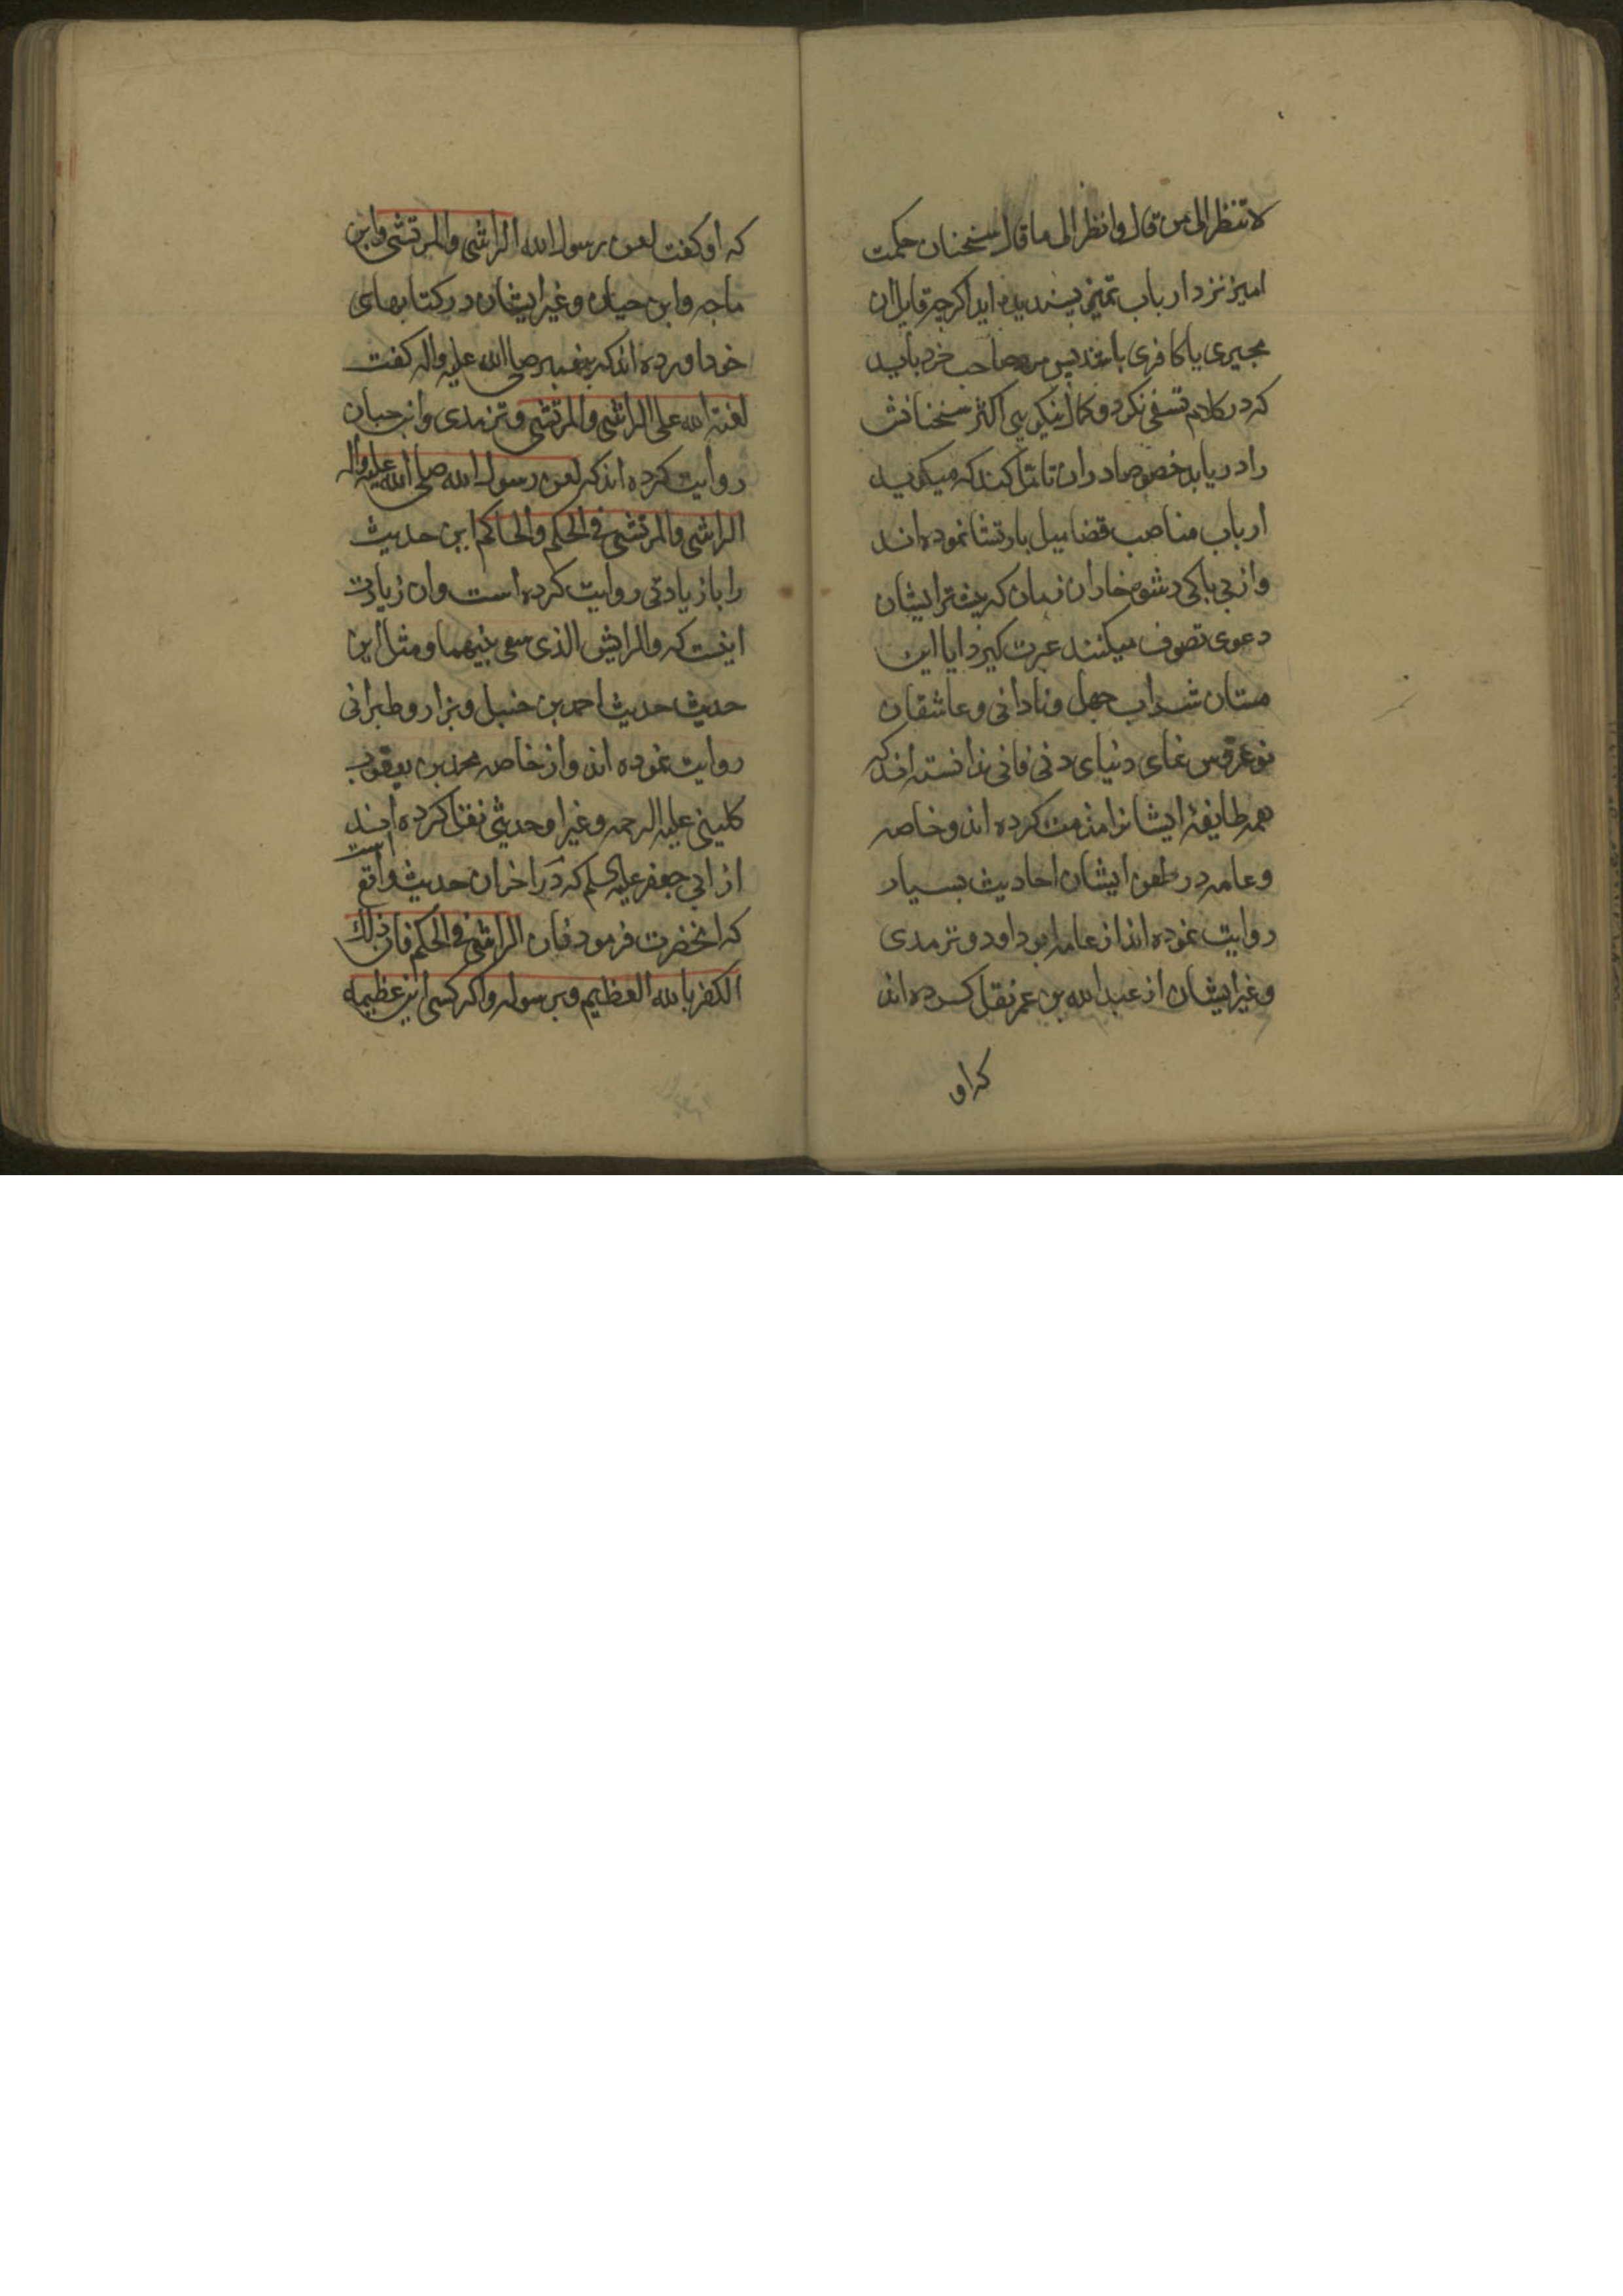 لا تنظر الی من قال وانظر الی ما قال سخنان حکمت
امیز نزد ارباب تمیز پسندیده اید اکرچه قایل ان
مجبری یا کافری باشد پس مرد صاحب خرد باید
که در کلام نسفی نکرد و کمال نیکویی اکثر سخنانش
را دریابد خصوصا دران تامل کند که میکوید
ارباب مناصب قضا میل بارتشا نموده اند
واز بی باکی رشوه خاران زمان که بیشتر ایشان
دعوی تصوف میکنند عبرت کیرد ایا این
مستان شراب جهل ونادانی وعاشقان
نوعروس نمای دنیای دنی فانی ندانسته اند که
همه طایفه ایشانرا مذمت کرده اند وخاصه
وعامه در طعن ایشان احادیث بسیار
روایت نموده اند از عامه ابو داود وترمدی
وغیر ایشان از عبد الله بن عمر نقل کرده اند
که او
که او کفت لعن رسول الله الراشی والمرتشی وابن
ماجه وابن حبان وغیر ایشان در کتابهای
خود اورده اند که پیغمبر صلی الله علیه واله کفت
لعنة الله علی الراشی والمرتشی وترمدی وابن حبان
روایت کرده اند که لعن رسول الله صلی الله علیه واله
الراشی والمرتشی فی الحکم والحاکم این حدیث
را بازیادتی روایت کرده است وان زیادت
اینست که والرایش الذی سعی بینهما ومثل این
حدیث حدیث احمد بن حنبل وبزار وطبرانی
روایت نموده اند واز خاصه محمد بن یعقوب
کلینی علیه الرحمه وغیر او حدیثی نقل کرده اند
از ابی جعفر علیه السلم که در اخر ان حدیث واقع است
که انحضرت فرمود فان الراشی فی الحکم فان ذلك
الکفر بالله العظیم وبرسوله واکر کسی این عظیمه